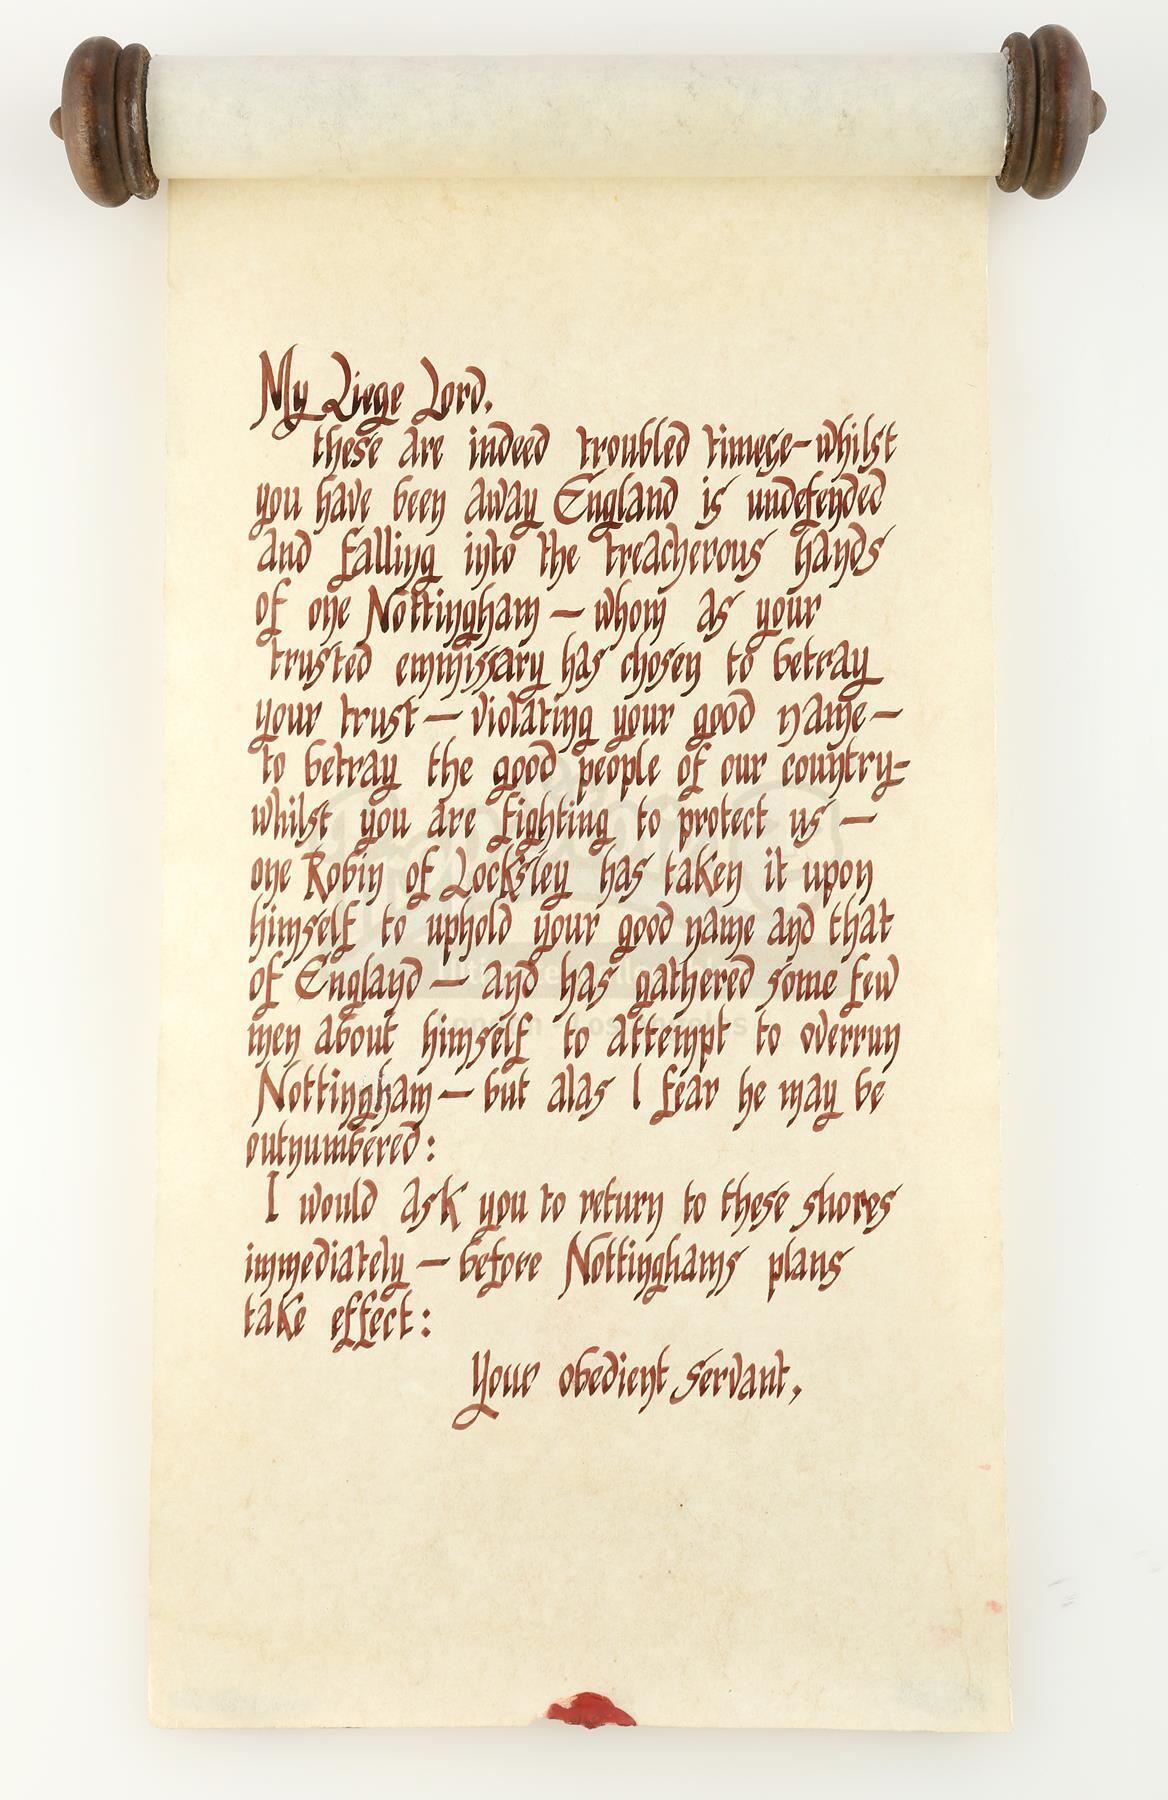 My Liege Lord.
these are indeed troubled times – whilst
you have been away England is undefended
and falling into the treacherous hands
of one Nottingham – whom as your
trusted emmissary has chosen to betray
your trust – violating your good name –
to betray the good people of our country –
whilst you are fighting to protect us –
one Robin of Locksley has taken it upon
himself to uphold your good name and that
of England – and has gathered some few
men about himself to attempt to overrun
Nottingham – but alas I fear he may be
outnumbered:
I would ask you to return to these shores
immediately – before Nottinghams plans
take effect:
Your obedient servant,